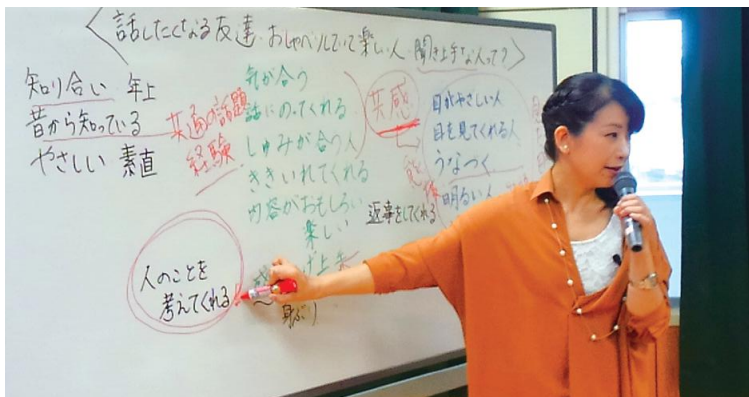 〈話したくなる友達・おしゃべりしていて楽しい人・聞き上手な人って?〉
知り合い 年上
昔から知っている
やさしい 素直
共通の話題
経験
気が合う
話にのってくれる
しゅみが合う人
ききいれてくれる
内容がおもしろい
楽しい
げ上手
身ぶり
共感
目がやさしい人
目を見てくれる人
うなづく
明るい人
返事をしてくれる
人のことを
考えてくれる